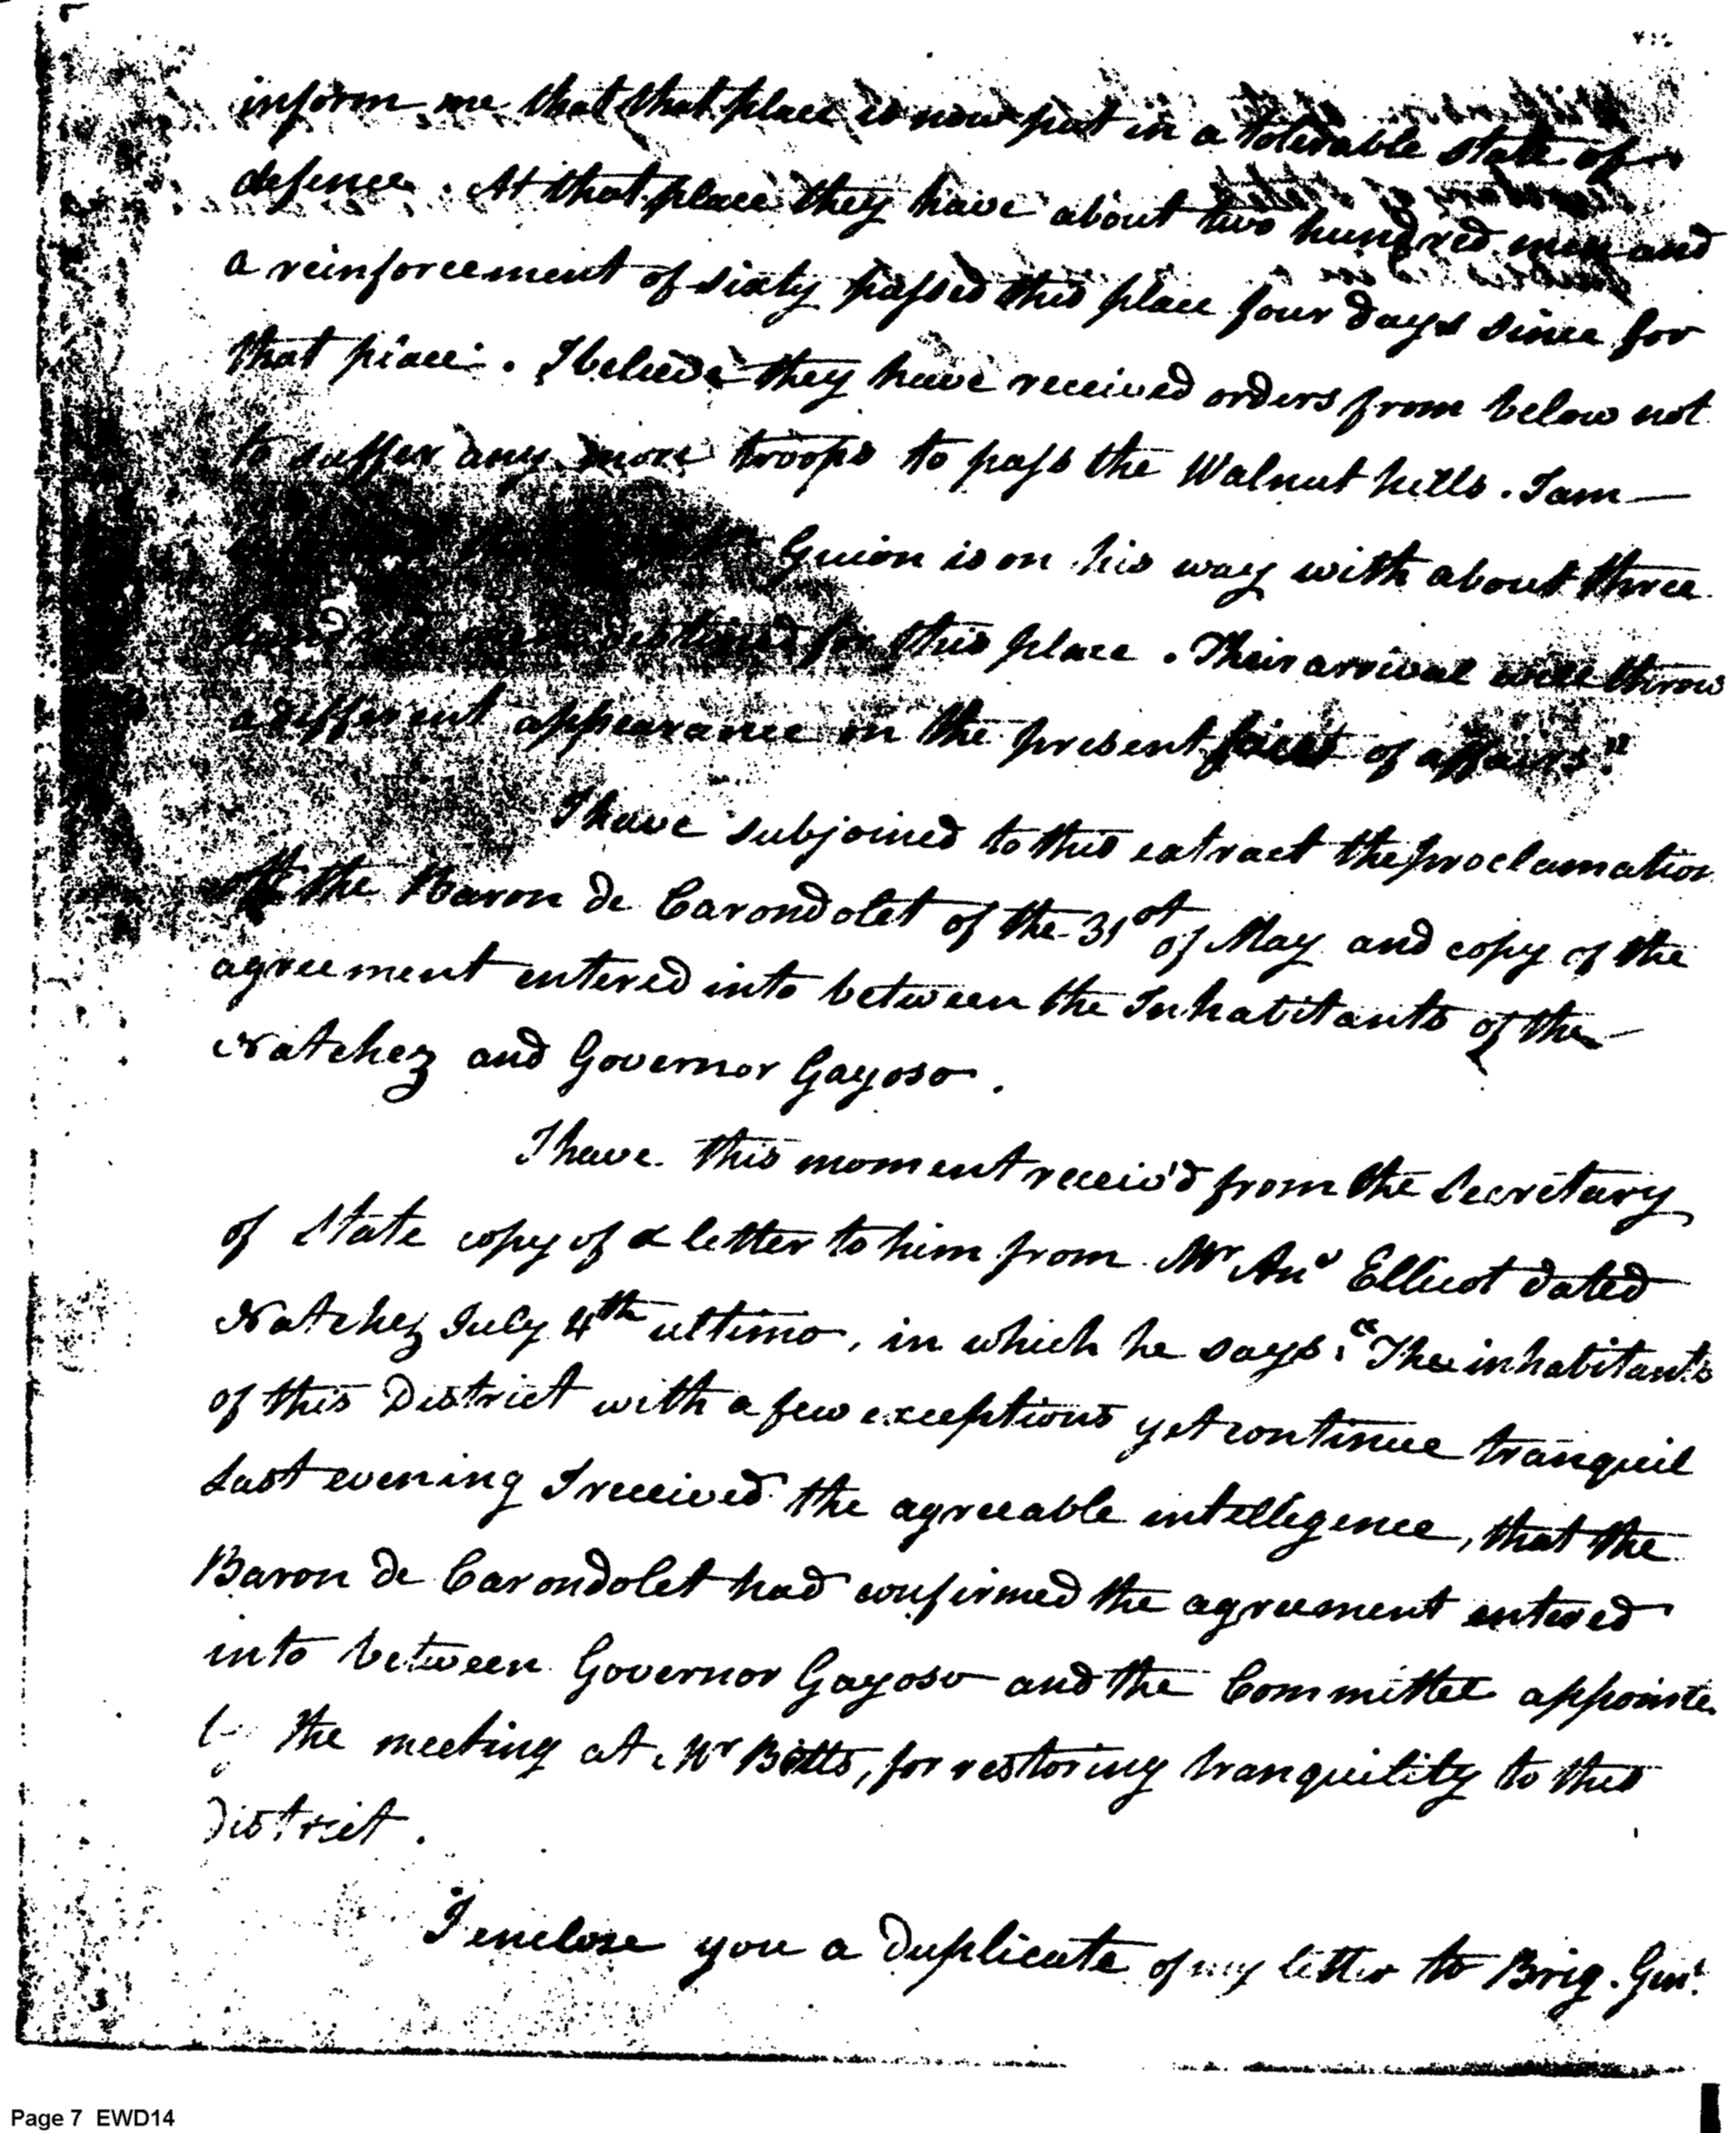 inform me that that place is now put in a tolerable state of
defence. At that place they have about two hundred men and
a reinforcement of sixty passed this place four days since for
that place. I beleive they have received orders from below not
to suffer any more troops to pass the Walnut hills. I am
Guion is on his way with about three
destined for this place. Their arrival will throw
a different appearance on the present face of affairs."
I have subjoined to this extract the proclamation
of the Baron de Carondolet of the 31st of May and copy of the
agreement entered into between the Inhabitants of the
Natchez and Governor Gayoso.
I have this moment receiv'd from the Secretary
of State copy of a letter to him from Mr And Ellicot dated
Natchez July 4th ultimo, in which he says, "The inhabitants
of this District with a few exceptions yet continue tranquil
Last evening I received the agreeable intelligence, that the
Baron de Carondolet had confirmed the agreement entered
into between Governor Gayoso and the Committee appointe
by the meeting at Mr Bilts, for restoring tranquility to this
District.
I enclose you a Duplicate of my letter to Brig. Genl.
Page 7 EWD14